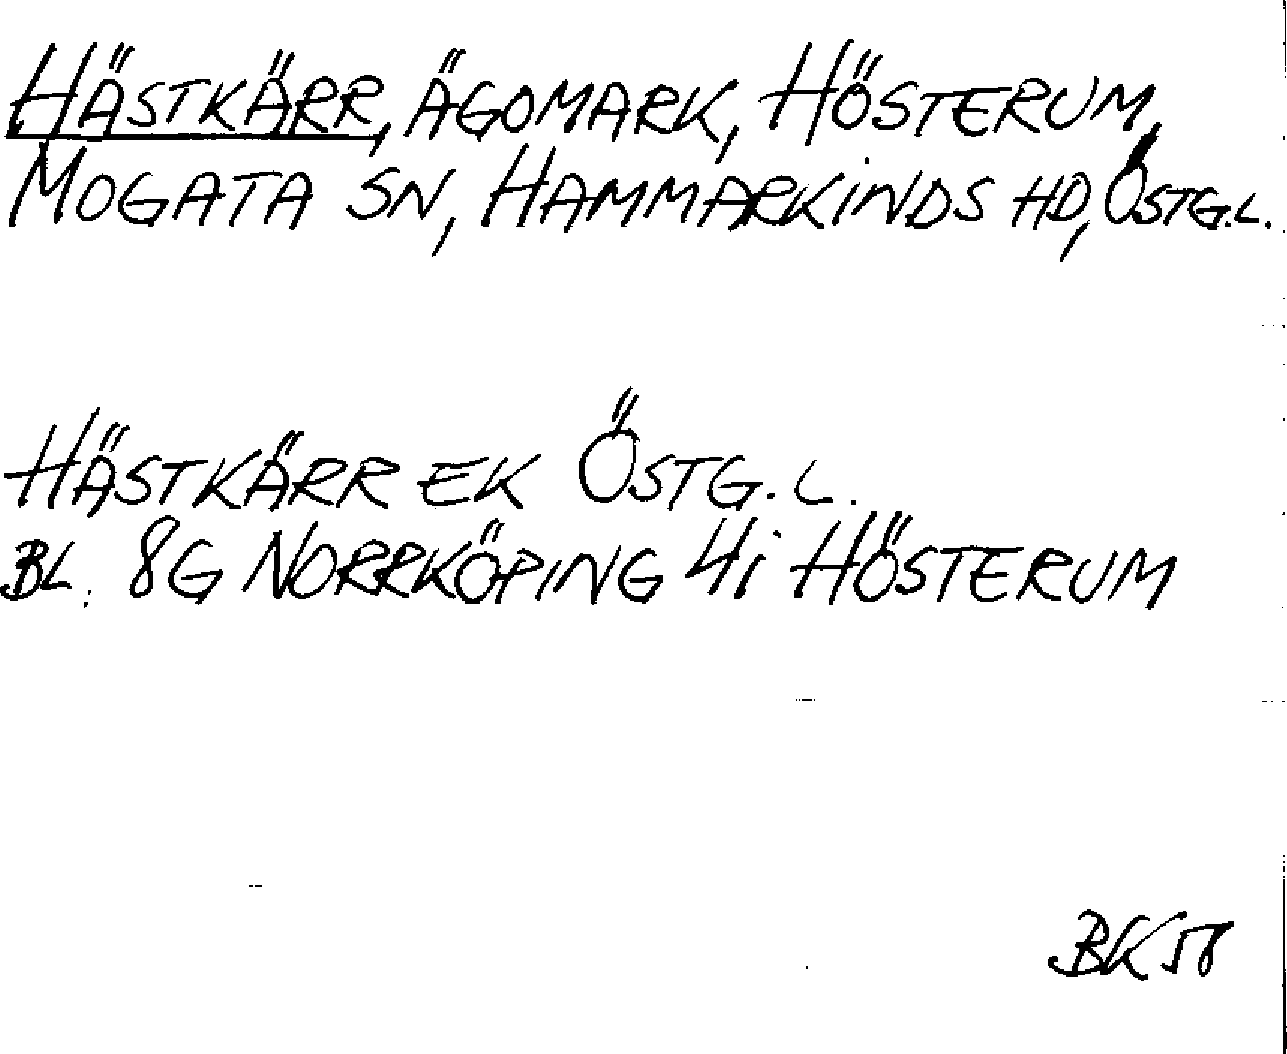 HÄSTKÄRR, ÄGOMARK, HÖSTERUM,
MOGATA SN, HAMMARKINDS HD, ÖSTG.L.
HÄSTKÄRR EK ÖSTG. L.
BL. 8G NORRKÖPING 4i HÖSTERUM
BK